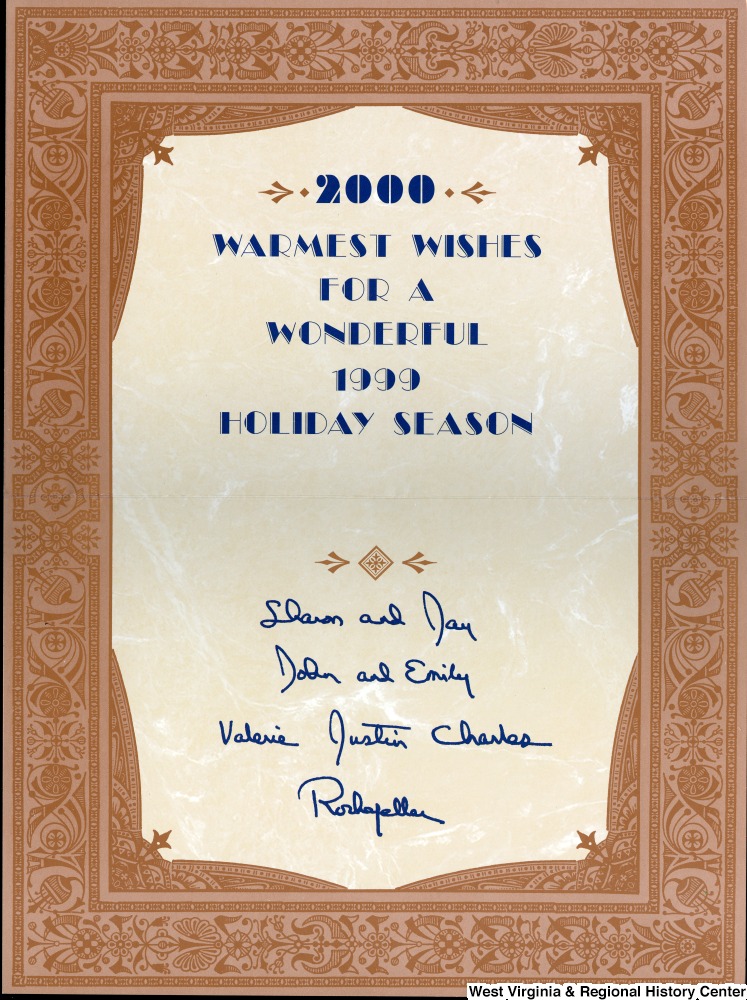 2000
WARMEST WISHES
FOR A
WONDERFUL
1999
HOLIDAY SEASON
Sharon and Jay
John and Emily
Valerie Justin Charles
Rockefeller
West Virginia & Regional History Center